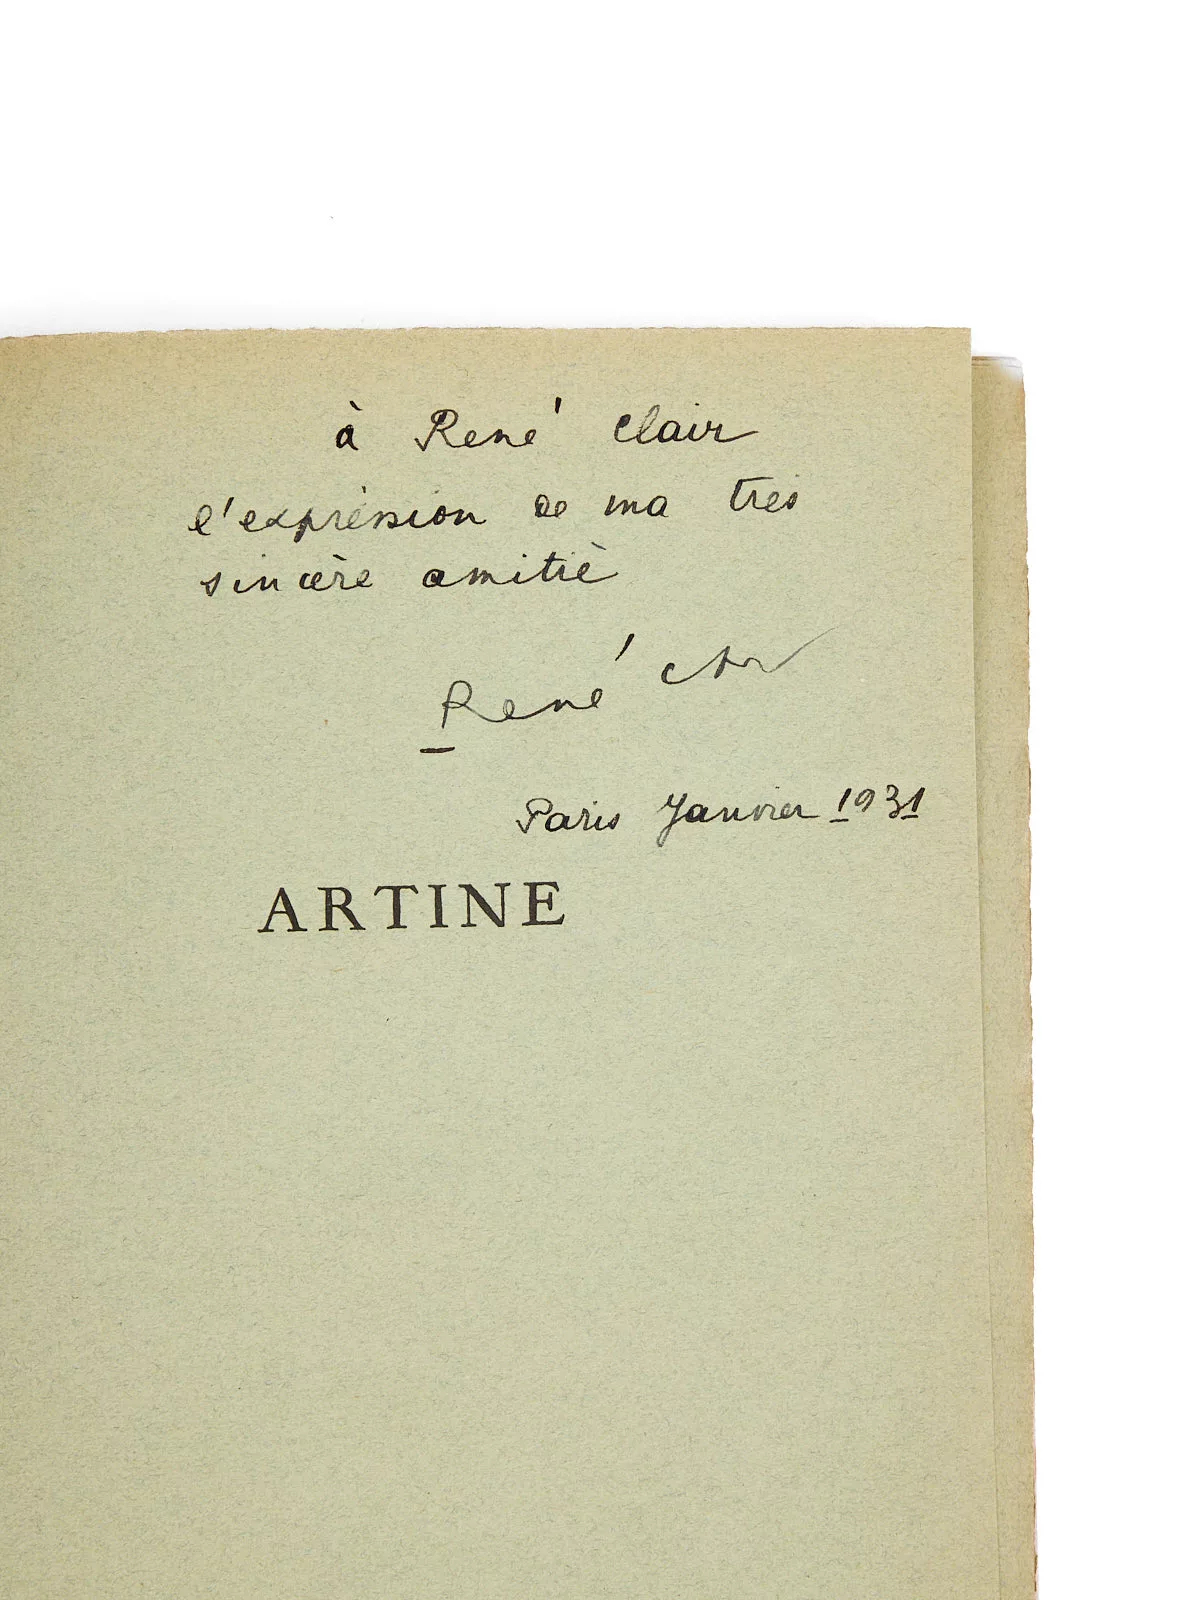 à René Clair
l'expréssion de ma très
sincère amitié
René Char
Paris Janvier 1931
ARTINE